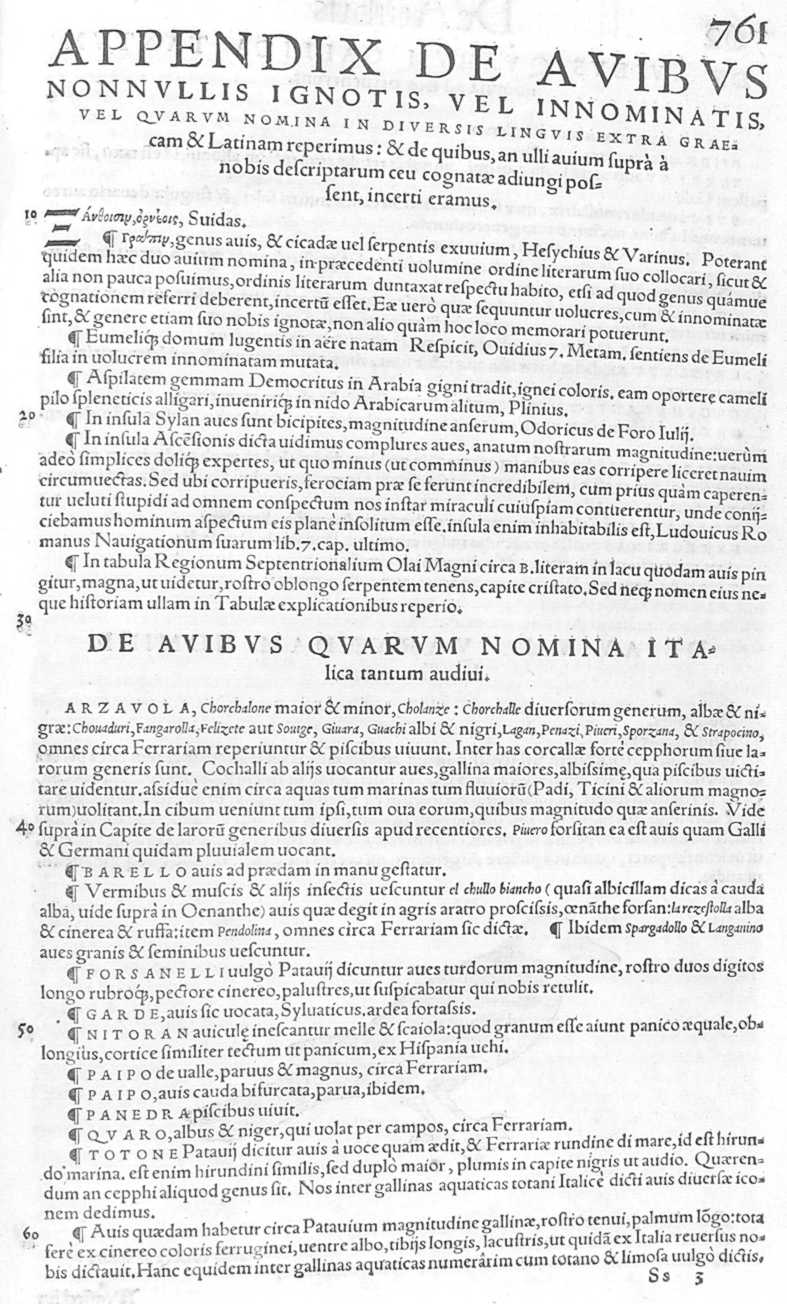 761
APPENDIX DE AVIBVS
NONNVLLIS IGNOTIS, VEL INNOMINATIS,
VEL QVARVM NOMINA IN DIVERSIS LINGVIS EXTRA GRAE⸗
cam & Latinam reperimus: & de quibus, an ulli auium ſuprà à
nobis deſcriptarum ceu cognatæ adiungi poſ⸗
ſent, incerti eramus.
10 Ξάνθοιπυ, ὀρνέοις, Suidas.
¶ genus auis, & cicadæ uel ſerpentis exuuium, Heſychius & Varinus. Poterant
quidem hæc duo auium nomina, in præcedenti uolumine ordine literarum ſuo collocari, ſicut &
alia non pauca poſuimus, ordinis literarum duntaxat reſpectu habito, etſi ad quod genus quámue
cognationem referri deberent, incertũ eſſet. Eæ uerò quæ ſequuntur uolucres, cum & innominatæ
ſint, & genere etiam ſuo nobis ignotæ, non alio quàm hoc loco memorari potuerunt.
¶ Eumeliq́ domum lugentis in aëre natam Reſpicit, Ouidius 7. Metam. ſentiens de Eumeli
filia in uolucrem innominatam mutata.
¶ Aſpilatem gemmam Democritus in Arabia gigni tradit, ignei coloris. eam oportere cameli
pilo ſpleneticis alligari, inueniriq́ in nido Arabicarum alitum, Plinius.
20 ¶ In inſula Sylan aues ſunt bicipites, magnitudine anſerum, Odoricus de Foro Iulij.
¶ In inſula Aſcẽſionis dicta uidimus complures aues, anatum noſtrarum magnitudine: uerùm
adeò ſimplices doliq́ expertes, ut quo minus (ut comminus) manibus eas corripere liceret nauim
circumuectas. Sed ubi corripueris, ferociam præ ſe ferunt incredibilem, cum prius quàm caperen⸗
tur ueluti ſtupidi ad omnem conſpectum nos inſtar miraculi cuiuſpiam contuerentur, unde conij⸗
ciebamus hominum aſpectum eis planè inſolitum eſſe. inſula enim inhabitabilis eſt, Ludouicus Ro
manus Nauigationum ſuarum lib. 7. cap. ultimo.
¶ In tabula Regionum Septentrionalium Olai Magni circa B. literam in lacu quodam auis pin
gitur, magna, ut uidetur, roſtro oblongo ſerpentem tenens, capite criſtato. Sed neq́ nomen eius ne⸗
que hiſtoriam ullam in Tabulæ explicationibus reperio.
30
DE AVIBVS QVARVM NOMINA ITA⸗
lica tantum audiui.
ARZAVOLA, Chorchalone maior & minor, Cholanze: Chorchalle diuerſorum generum, albæ & ni⸗
græ: Chouaduri, Fangarolla, Felizete aut Souige, Giuara, Guachi albi & nigri, Lagan, Penazi, Piueri, Sporzana, & Strapocino,
omnes circa Ferrariam reperiuntur & piſcibus uiuunt. Inter has corcallæ fortè cepphorum ſiue la⸗
rorum generis ſunt. Cochalli ab alijs uocantur aues, gallina maiores, albiſſimę, qua piſcibus uicti⸗
tare uidentur. aſſiduè enim circa aquas tum marinas tum fluuiorũ (Padi, Ticini & aliorum magno⸗
rum) uolitant. In cibum ueniunt tum ipſi, tum oua eorum, quibus magnitudo quæ anſerinis. Vide
40 ſuprà in Capite de larorũ generibus diuerſis apud recentiores. Piuero forſitan ea eſt auis quam Galli
& Germani quidam pluuialem uocant.
¶ BARELLO auis ad prædam in manu geſtatur.
¶ Vermibus & muſcis & alijs inſectis ueſcuntur el chullo biancho (quaſi albicillam dicas à cauda
alba, uide ſuprà in Oenanthe) auis quæ degit in agris aratro proſciſſis, œnãthe forſan: la rezeſtolla alba
& cinerea & ruffa: item Pendolina, omnes circa Ferrariam ſic dictæ. ¶ Ibidem Spargadollo & Langanino
aues granis & ſeminibus ueſcuntur.
¶ FORSANELLI uulgò Patauij dicuntur aues turdorum magnitudine, roſtro duos digitos
longo rubroq́, pectore cinereo, paluſtres, ut ſuſpicabatur qui nobis retulit.
¶ GARDE, auis ſic uocata, Syluaticus. ardea fortaſſis.
50 ¶ NITORAN auiculę ineſcantur melle & ſcaiola: quod granum eſſe aiunt panico æquale, ob⸗
longius, cortice ſimiliter tectum ut panicum, ex Hiſpania uehi.
¶ PAIPO de ualle, paruus & magnus, circa Ferrariam.
¶ PAIPO, auis cauda bifurcata, parua, ibidem.
¶ PANEDRA piſcibus uiuit.
¶ QVARO, albus & niger, qui uolat per campos, circa Ferrariam.
¶ TOTONE Patauij dicitur auis à uoce quam ædit, & Ferrariæ rundine di mare, id eſt hirun⸗
do marina. eſt enim hirundini ſimilis, ſed duplò maior, plumis in capite nigris ut audio. Quæren⸗
dum an cepphi aliquod genus ſit. Nos inter gallinas aquaticas totani Italicè dicti auis diuerſæ ico⸗
nem dedimus.
60 ¶ Auis quædam habetur circa Patauium magnitudine gallinæ, roſtro tenui, palmum lõgo: tota
ferè ex cinereo coloris ferruginei, uentre albo, tibijs longis, lacuſtris, ut quidã ex Italia reuerſus no⸗
bis dictauit. Hanc equidem inter gallinas aquaticas numerârim cum totano & limoſa uulgò dictis.
Ss 3